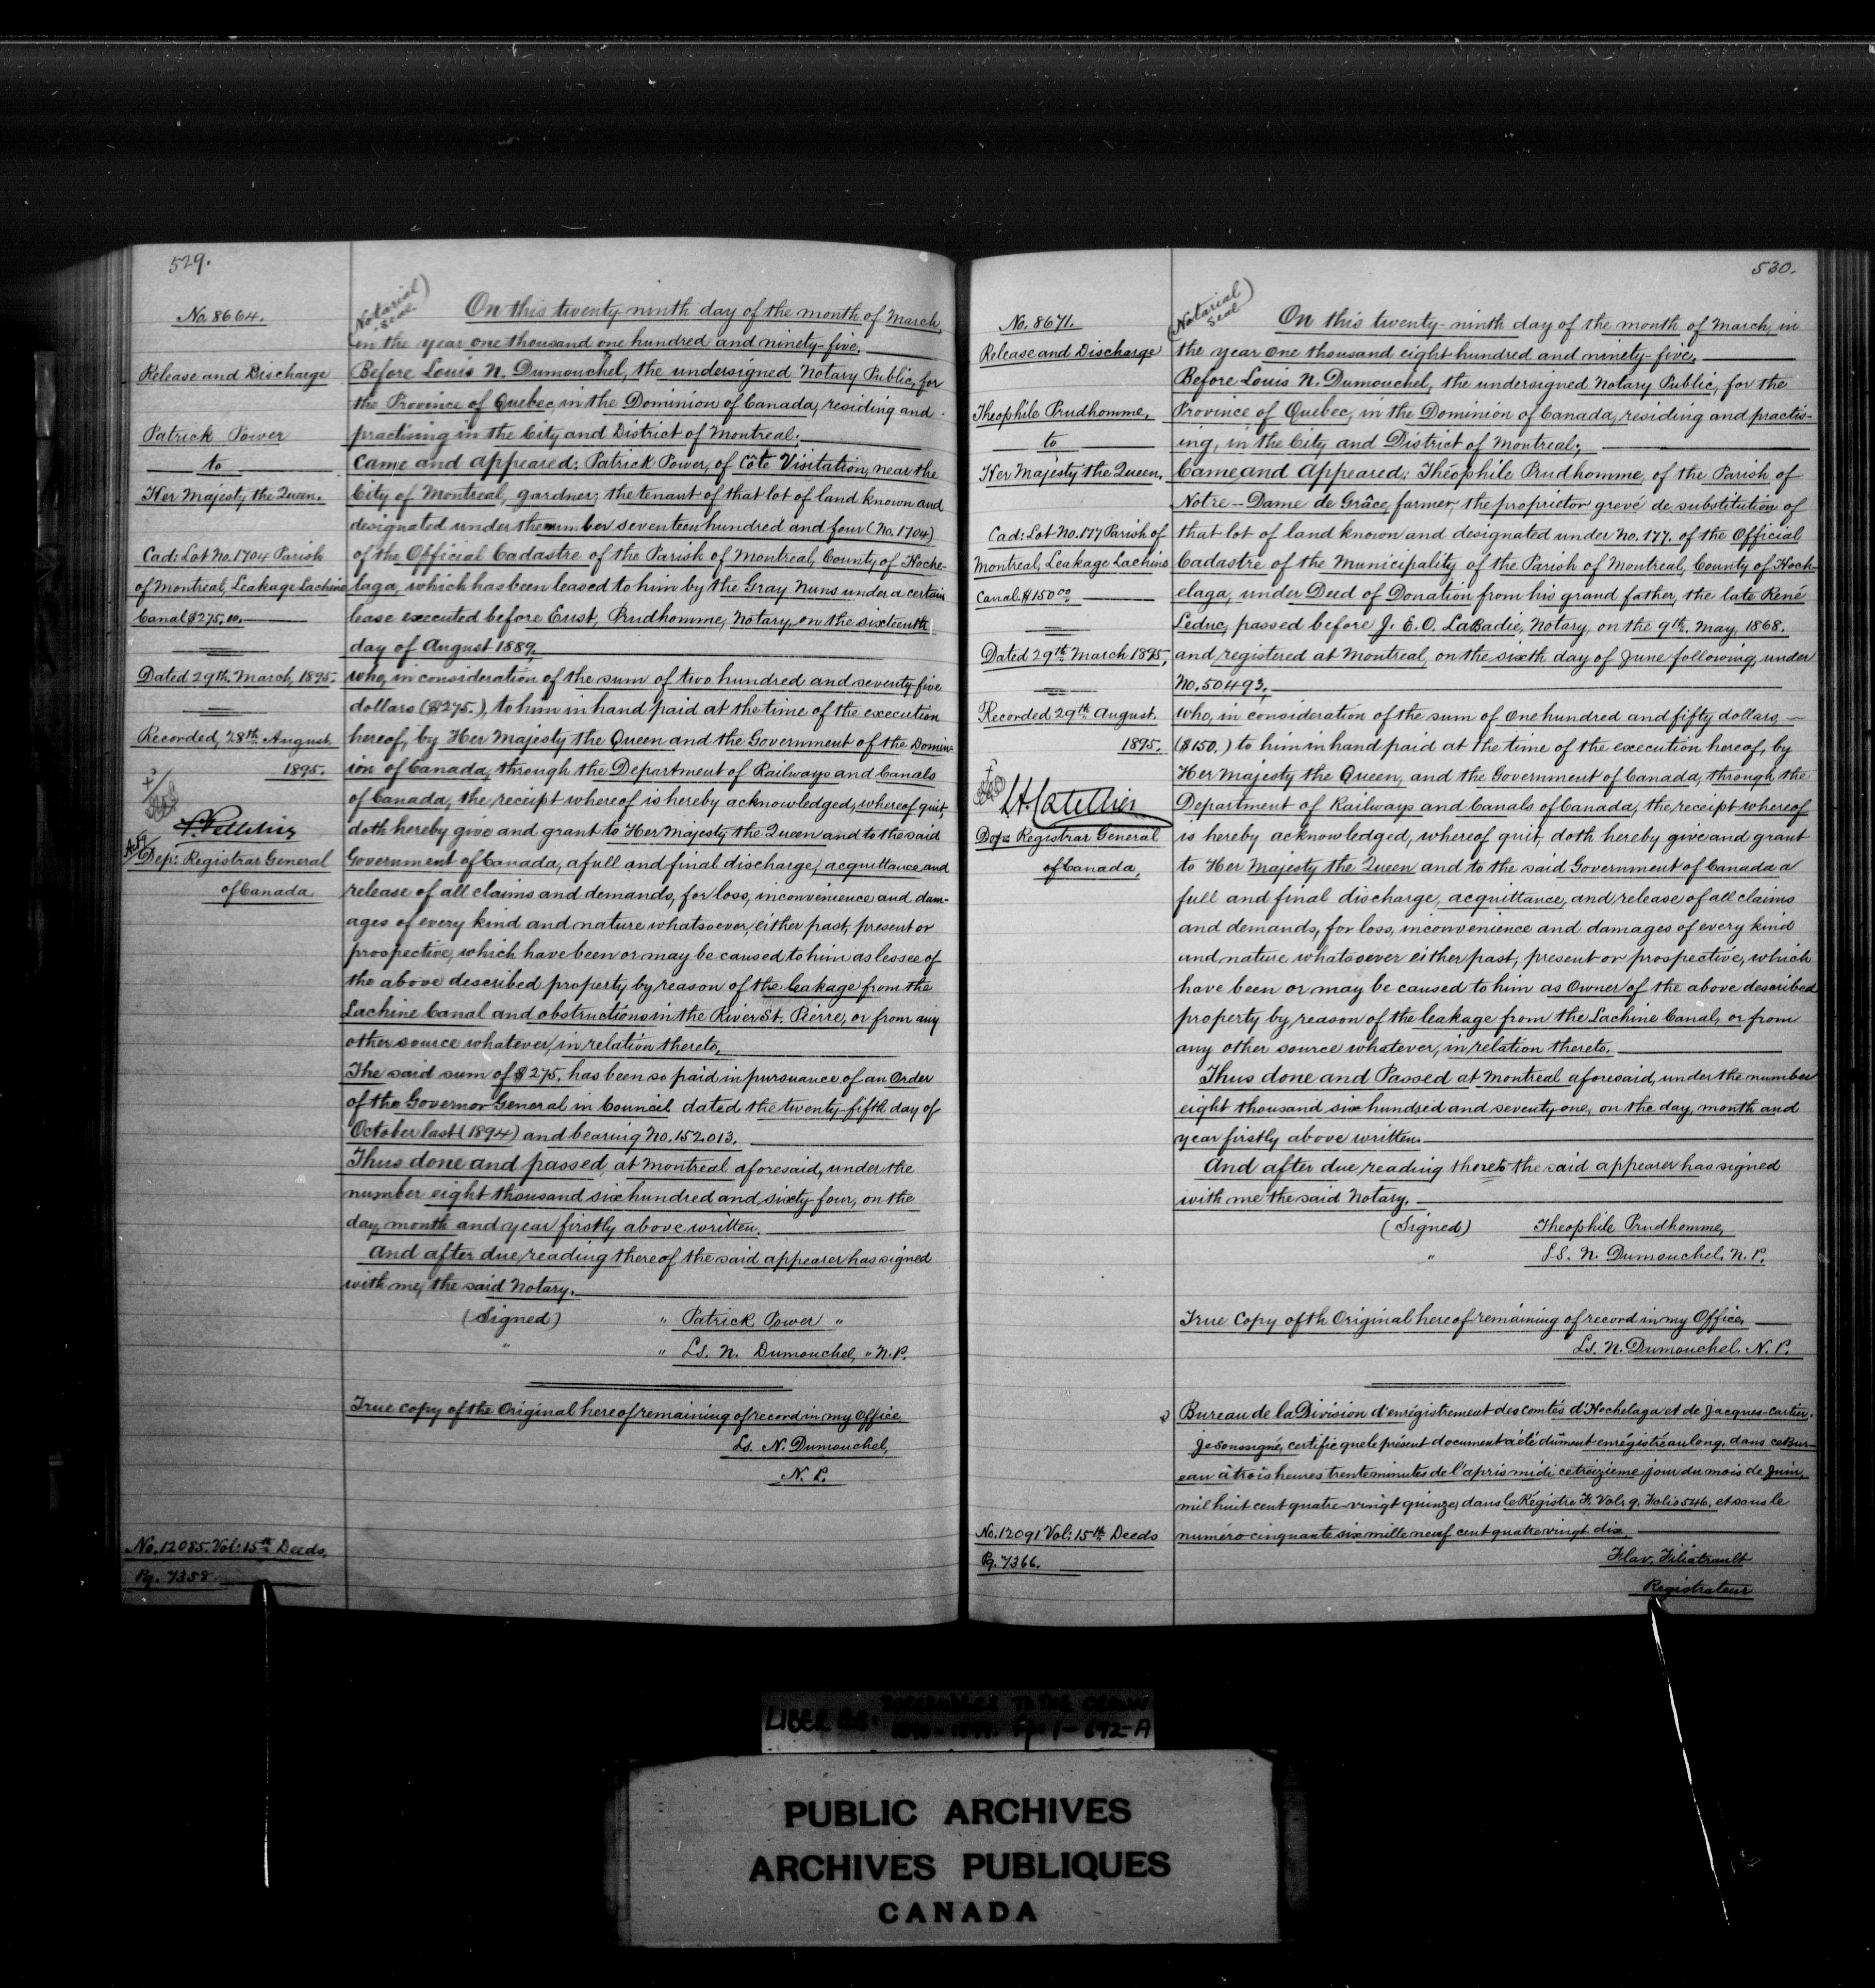 529.
No. 8664.
Release and Discharge
Patrick Power
to
Her Majesty the Queen.
Cad: Lot No. 1704 Parish
of Montreal, Leakage Lachine
Canal $275.00.
Dated 29th March, 1895.
Recorded, 28th August.
1895.
Dep: Registrar General
of Canada
No. 12085. Vol: 15th Deeds,
Pg. 7358.
(Notarial
Seal)
On this twenty-ninth day of the month of March,
in the year one thousand one hundred and ninety-five.
Before Louis N. Dumouchel, the undersigned Notary Public, for
the Province of Quebec, in the Dominion of Canada, residing and
practising in the City and District of Montreal:
Came and appeared: Patrick Power, of Côte Visitation, near the
City of Montreal, gardner; the tenant of that lot of land known and
designated under the number seventeen hundred and four (No. 1704)
of the Official Cadastre of the Parish of Montreal, County of Hoche-
laga, which has been leased to him by the Gray Nuns under a certain
lease executed before Eust, Prudhomme, Notary, on the sixteenth
day of August 1889.
who, in consideration of the sum of two hundred and seventy-five
dollars ($275.), to him in hand paid at the time of the execution
hereof, by Her Majesty the Queen and the Government of the Domin-
ion of Canada, through the Department of Railways and Canals
of Canada, the receipt whereof is hereby acknowledged, whereof quit,
doth hereby give and grant to Her Majesty the Queen and to the said
Government of Canada, a full and final discharge, acquittance and
release of all claims and demands, for loss, inconvenience and dam-
ages of every kind and nature whatsoever, either past, present or
prospective, which have been or may be caused to him as lessee of
the above described property by reason of the leakage from the
Lachine Canal and obstructions in the River St. Pierre, or from any
other source whatever, in relation thereto.
The said sum of $275. has been so paid in pursuance of an Order
of the Governor General in Council dated the twenty-fifth day of
October last (1894) and bearing No. 152013.
Thus done and passed at Montreal aforesaid, under the
number eight thousand six hundred and sixty-four, on the
day, month and year firstly above written.
And after due reading thereof the said appearer has signed
with me, the said Notary.
(Signed) " Patrick Power "
" " Ls. N. Dumouchel, " N.P.
True copy of the Original hereof remaining of record in my Office.
Ls. N. Dumouchel,
N. P.
530.
No. 8671.
Release and Discharge
Theophile Prudhomme,
to
Her Majesty the Queen.
Cad: Lot No. 177 Parish of
Montreal, Leakage Lachine
Canal. $150.00
Dated 29th March 1895,
Recorded 29th August.
1895.
Dep: Registrar General
of Canada,
No. 12091 Vol: 15th Deeds
Pg. 7366.
(Notarial
Seal)
On this twenty-ninth day of the month of March, in
the year one thousand eight hundred and ninety-five,
Before Louis N. Dumouchel, the undersigned Notary Public, for the
Province of Quebec, in the Dominion of Canada, residing and practis-
ing, in the City and District of Montreal;
Came and Appeared: Théophile Prudhomme, of the Parish of
Notre-Dame de Grâce, farmer, the proprietor grevé de substitution of
that lot of land known and designated under No. 177. of the Official
Cadastre of the Municipality of the Parish of Montreal, County of Hoch-
elaga, under Deed of Donation from his grand father, the late René
Leduc, passed before J. E. O. LaBadie, Notary, on the 9th. May, 1868.
and registered at Montreal, on the sixth day of June following, under
No. 50493.
who, in consideration of the sum of one hundred and fifty dollars,
($150,) to him in hand paid at the time of the execution hereof, by
Her Majesty the Queen, and the Government of Canada, through the
Department of Railways and Canals of Canada, the receipt whereof
is hereby acknowledged, whereof quit, doth hereby give and grant
to Her Majesty the Queen and to the said Government of Canada a
full and final discharge, acquittance, and release of all claims
and demands, for loss, inconvenience and damages of every kind
and nature whatsoever either past, present or prospective, which
have been or may be caused to him as Owner of the above described
property by reason of the leakage from the Lachine Canal, or from
any other source whatever, in relation thereto.
Thus done and Passed at Montreal aforesaid, under the number
eight thousand six hundred and seventy-one, on the day, month and
year firstly above written.
And after due reading thereof the said appearer has signed
with me the said Notary.
(Signed) Theophile Prudhomme,
" LS. N. Dumouchel, N.P.
True Copy of th Original hereof remaining of record in my Office.
Ls. N. Dumouchel. N. P.
Bureau de la Division d'enrégistrement des comtés d'Hochelaga et de Jacques-Cartier.
Je Soussigné, certifie que le présent document a été dûment enrégistré au long, dans ce Bur-
eau à trois heures trente minutes de l'après midi ce treizieme jour du mois de Juin,
mil huit cent quatre-vingt quinze, dans le Régistre F. Vol: 9. Folio 546, et sous le
numéro cinquante six mille neuf cent quatre vingt dix.
Flav. Filiatrault
Registrateur
LIBER SURRENDERS TO THE CROWN
Pp. 1-692-A
PUBLIC ARCHIVES
ARCHIVES PUBLIQUES
CANADA